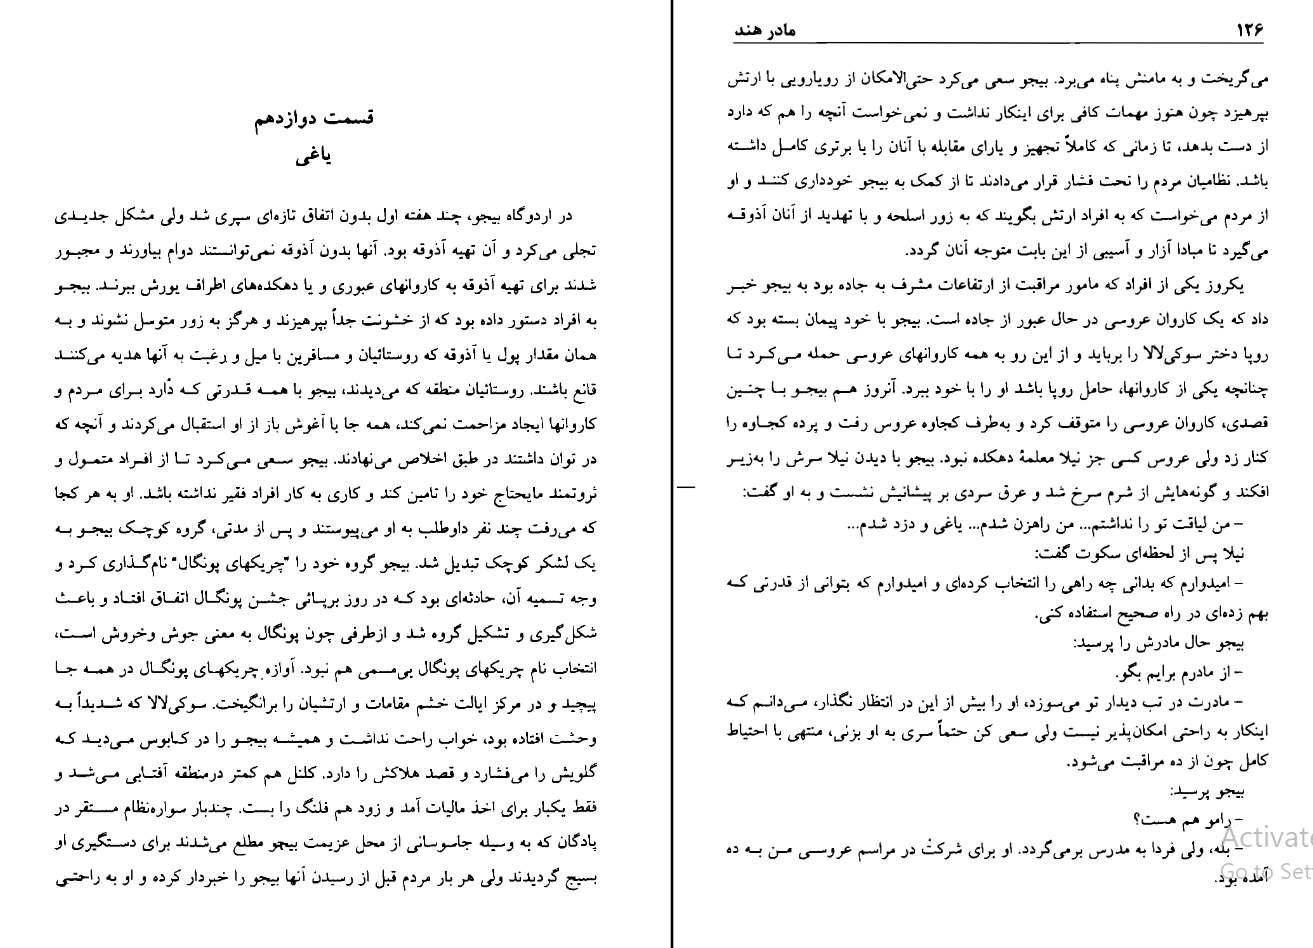 قسمت دوازدهم
یاغی
در اردوگاه بیجو، چند هفته اول بدون اتفاق تازه‌ای سپری شد ولی مشکل جدیـدی
تجلی می‌کرد و آن تهیه آذوقه بود. آنها بدون آذوقه نمی‌توانستند دوام بیاورند و مجبـور
شدند برای تهیه آذوقه به کاروانهای عبوری و یا دهکده‌های اطراف یورش ببرنـد. بیجـو
به افراد دستور داده بود که از خشونت جداً بپرهیزند و هرگز به زور متوسل نشوند و بـه
همان مقدار پول یا آذوقه که روستائیان و مسافرین با میل و رغبت به آنها هدیه می‌کننـد
قانع باشند. روستائیان منطقه که می‌دیدند، بیجو با همـه قـدرتی کـه دارد بـرای مـردم و
کاروانها ایجاد مزاحمت نمی‌کند، همه جا با آغوش باز از او استقبال می‌کردند و آنچه که
در توان داشتند در طبق اخلاص می‌نهادند. بیجو سـعی مـی‌کـرد تـا از افـراد متمـول و
ثروتمند مایحتاج خود را تامین کند و کاری به کار افراد فقیر نداشته باشد. او به هر کجا
که می‌رفت چند نفر داوطلب به او می‌پیوستند و پس از مدتی، گروه کوچـک بیجـو بـه
یک لشکر کوچک تبدیل شد. بیجو گروه خود را "چریکهای پونگال" نام‌گـذاری کـرد و
وجه تسمیه آن، حادثه‌ای بود کـه در روز برپـائی جشـن پونگـال اتفـاق افتـاد و باعـث
شکل‌گیری و تشکیل گروه شد و ازطرفی چون پونگال به معنی جوش وخروش اسـت،
انتخاب نام چریکهای پونگال بی‌مـسمی هم نبود. آوازه چریکهـای پونگـال در همـه جـا
پیچید و در مرکز ایالت خشم مقامات و ارتشیان را برانگیخت. سوکی‌لالا که شـدیداً بـه
وحشت افتاده بود، خواب راحت نداشـت و همیشـه بیجـو را در کـابوس مـی‌دیـد کـه
گلویش را می‌فشارد و قصد هلاکش را دارد. کلنل هم کمتر درمنطقه آفتـابی مـی‌شـد و
فقط یکبار برای اخذ مالیات آمد و زود هم فلنگ را بست. چندبار سواره‌نظام مسـتقر در
پادگان که به وسیله جاسوسانی از محل عزیمت بیجو مطلع می‌شدند برای دسـتگیری او
بسیج گردیدند ولی هر بار مردم قبل از رسیدن آنها بیجو را خبردار کرده و او به راحتـی
۱۲۶
مادر هند
می‌گریخت و به مامنش پناه می‌برد. بیجو سعی می‌کرد حتی‌الامکان از رویارویی با ارتش
بپرهیزد چون هنوز مهمات کافی برای اینکار نداشت و نمی‌خواست آنچه را هم که دارد
از دست بدهد، تا زمانی که کاملاً تجهیز و یارای مقابله با آنان را یا برتری کامـل داشـته
باشد. نظامیان مردم را تحت فشار قرار می‌دادند تا از کمک به بیجو خودداری کننـد و او
از مردم می‌خواست که به افراد ارتش بگویند که به زور اسلحه و با تهدید از آنان آذوقـه
می‌گیرد تا مبادا آزار و آسیبی از این بابت متوجه آنان گردد.
یکروز یکی از افراد که مامور مراقبت از ارتفاعات مشرف به جاده بود به بیجو خبـر
داد که یک کاروان عروسی در حال عبور از جاده است. بیجو با خود پیمان بسته بود که
روپا دختر سوکی‌لالا را برباید و از این رو به همه کاروانهای عروسی حمله مـی‌کـرد تـا
چنانچه یکی از کاروانها، حامل روپا باشد او را با خود ببرد. آنروز هـم بیجـو بـا چنـین
قصدی، کاروان عروسی را متوقف کرد و به‌طرف کجاوه عروس رفت و پرده کجـاوه را
کنار زد ولی عروس کسی جز نیلا معلمۀ دهکده نبود. بیجو با دیدن نیلا سرش را به‌زیـر
افکند و گونه‌هایش از شرم سرخ شد و عرق سردی بر پیشانیش نشست و به او گفت:
- من لیاقت تو را نداشتم... من راهزن شدم... یاغی و دزد شدم...
نیلا پس از لحظه‌ای سکوت گفت:
- امیدوارم که بدانی چه راهی را انتخاب کرده‌ای و امیدوارم که بتوانی از قدرتی کـه
بهم زده‌ای در راه صحیح استفاده کنی.
بیجو حال مادرش را پرسید:
- از مادرم برایم بگو.
- مادرت در تب دیدار تو می‌سوزد، او را بیش از این در انتظار نگذار، مـی‌دانـم کـه
اینکار به راحتی امکان‌پذیر نیست ولی سعی کن حتماً سری به او بزنی، منتهی با احتیاط
کامل چون از ده مراقبت می‌شود.
بیجو پرسید:
- رامو هم هست؟
- بله، ولی فردا به مدرس برمی‌گردد. او برای شرکت در مراسم عروسـی مـن بـه ده
آمده بود.
Activate
Go to Set